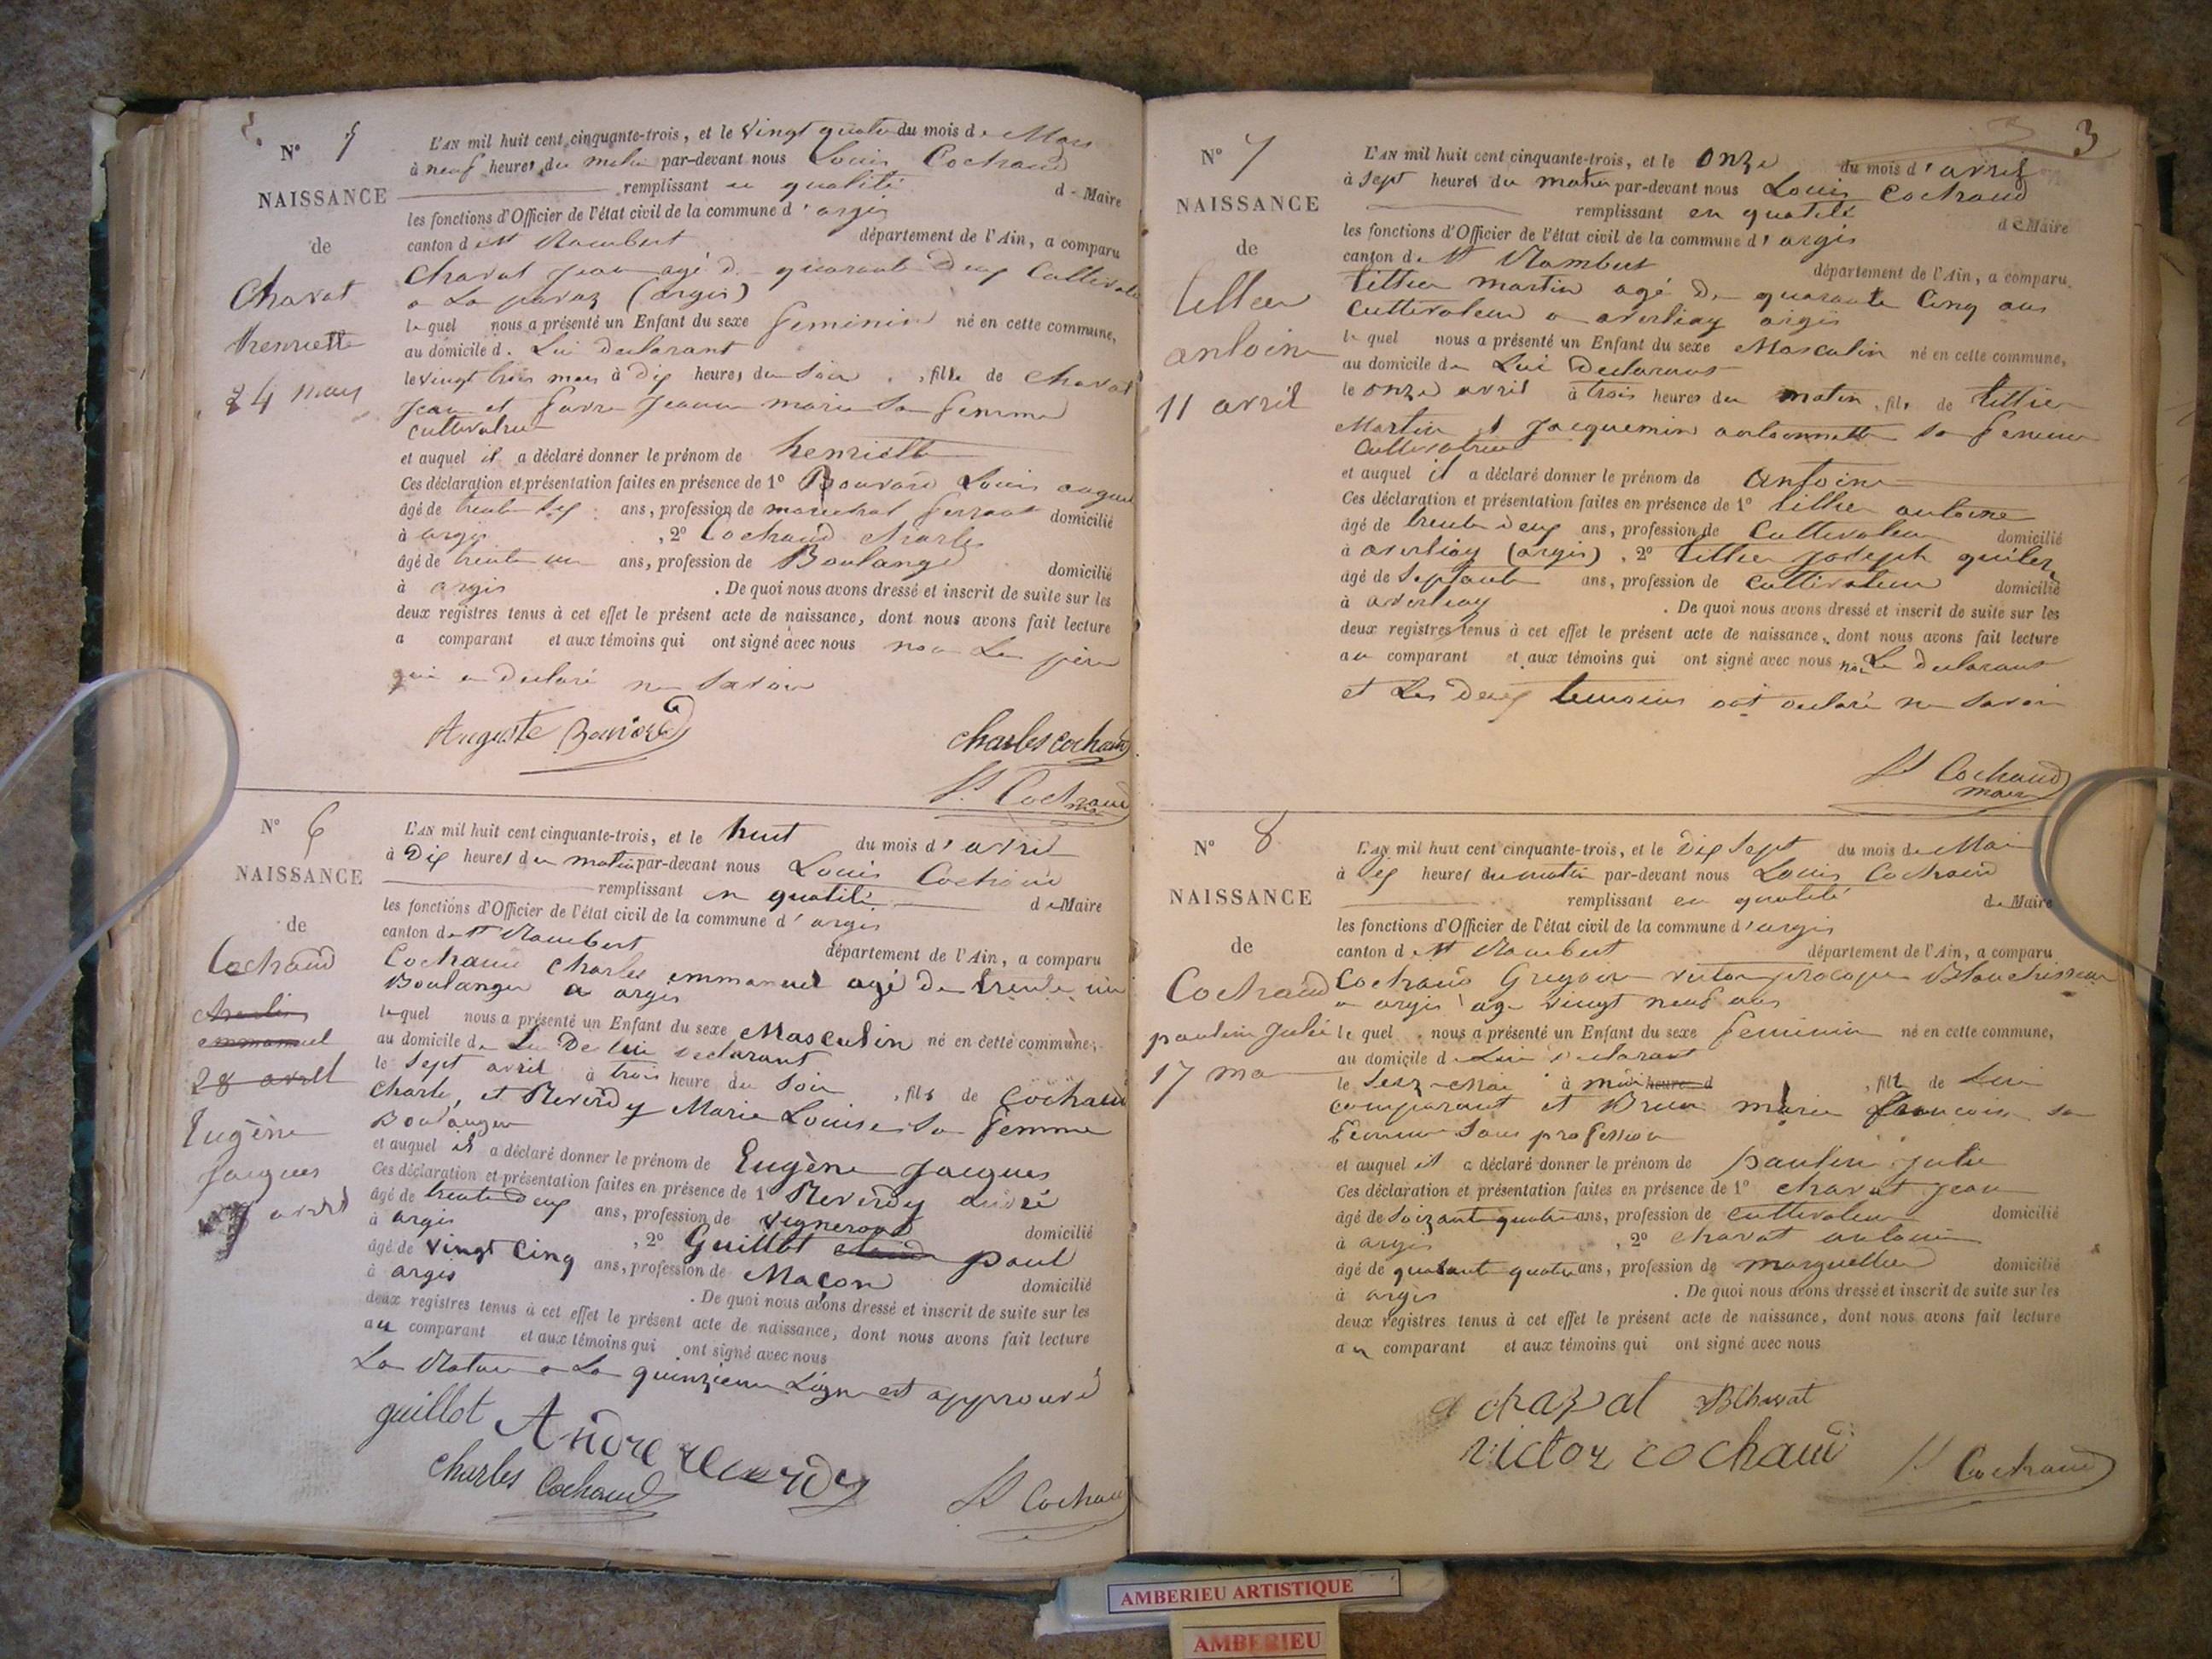 N° 5
NAISSANCE
de
Chavat
henriette
24 mars
L'AN mil huit cent cinquante-trois, et le vingt quatre du mois de Mars
à neuf heures du matin par-devant nous Louis Cochaud
remplissant en qualité de Maire
les fonctions d'Officier de l'état civil de la commune d'argis
canton de St Rambert département de l'Ain, a comparu
Chavat Jean agé de quarante deux
a La (argis)
lequel nous a présenté un Enfant du sexe feminin né en cette commune,
au domicile d. Lui declarant
le vingt trois mars à dix heures du soir, fille de Chavat
Jean et favre Jeanne marie sa femme
cultivatrice
et auquel il a déclaré donner le prénom de henriette
Ces déclaration et présentation faites en présence de 1° Bouvard Louis
âgé de trente six ans, profession de marechal ferrant domicilié
à argis, 2° Cochaud charles
âgé de trente un ans, profession de Boulanger domicilié
à argis. De quoi nous avons dressé et inscrit de suite sur les
deux registres tenus à cet effet le présent acte de naissance, dont nous avons fait lecture
a comparant et aux témoins qui ont signé avec nous non Le père
qui a declaré ne savoir
Auguste Bouvard
charles cochaud
Ls Cochaud
N° 6
NAISSANCE
de
Cochaud
charles
emmanuel
28 avril
Eugène
Jacques
7 avril
L'AN mil huit cent cinquante-trois, et le huit du mois d'avril
à Dix heures du matin par-devant nous Louis Cochaud
remplissant en qualité de Maire
les fonctions d'Officier de l'état civil de la commune d'argis
canton de St Rambert département de l'Ain, a comparu
Cochaud Charles emmanuel agé de trente un
Boulanger a argis
lequel nous a présenté un Enfant du sexe Masculin né en cette commune,
au domicile de De lui declarant
le sept avril à trois heure du soir, fils de Cochaud
Charle, et Reverdy Marie Louise sa femme
Boulanger
et auquel il a déclaré donner le prénom de Eugène Jacques
Ces déclaration et présentation faites en présence de 1° Reverdy André
âgé de trente deux ans, profession de vigneron domicilié
à argis, 2° Guillot paul
âgé de vingt Cinq ans, profession de Maçon domicilié
à argis. De quoi nous avons dressé et inscrit de suite sur les
deux registres tenus à cet effet le présent acte de naissance, dont nous avons fait lecture
au comparant et aux témoins qui ont signé avec nous
La Rature a La quinzieme Ligne est approuvé
guillot André reverdy
Charles Cochaud
Ls Cochaud
3
N° 7
NAISSANCE
de
tillier
antoine
11 avril
L'AN mil huit cent cinquante-trois, et le onze du mois d'avril
à sept heures du matin par-devant nous Louis Cochaud
remplissant en qualité de Maire
les fonctions d'Officier de l'état civil de la commune d'argis
canton de St Rambert département de l'Ain, a comparu
tillier martin agé de quarante Cinq ans
Cultivateur a averliaz argis
lequel nous a présenté un Enfant du sexe Masculin né en cette commune,
au domicile de Lui Declarant
le onze avril à trois heures du matin, fils de tillier
Martin et Jacquemin antoinnette sa femme
Cultivatrice
et auquel il a déclaré donner le prénom de antoine
Ces déclaration et présentation faites en présence de 1° tillier antoine
âgé de trente deux ans, profession de Cultivateur domicilié
à averliaz (argis), 2° tillier joseph
âgé de septante ans, profession de cultivateur domicilié
à averliaz. De quoi nous avons dressé et inscrit de suite sur les
deux registres tenus à cet effet le présent acte de naissance, dont nous avons fait lecture
au comparant et aux témoins qui ont signé avec nous non Le declarant
et Les Deux temoins ont declaré ne savoir
Ls Cochaud
maire
N° 8
NAISSANCE
de
Cochaud
paulin Julie
17 mai
L'AN mil huit cent cinquante-trois, et le Dix sept du mois de Mai
à six heures du matin par-devant nous Louis Cochaud
remplissant en qualité de Maire
les fonctions d'Officier de l'état civil de la commune d'argis
canton de St Rambert département de l'Ain, a comparu
Cochaud Gregoire victor procope Blanchisseur
a argis age vingt neuf ans
lequel nous a présenté un Enfant du sexe feminin né en cette commune,
au domicile de Lui declarant
le seize Mai à midi heures d, fille de Lui
comparant et Brun marie francoise sa
femme sans profession
et auquel il a déclaré donner le prénom de paulin julie
Ces déclaration et présentation faites en présence de 1° chavat jean
âgé de soixante quatre ans, profession de cultivateur domicilié
à argis, 2° chavat antoine
âgé de quarante quatre ans, profession de marguellier domicilié
à argis. De quoi nous avons dressé et inscrit de suite sur les
deux registres tenus à cet effet le présent acte de naissance, dont nous avons fait lecture
au comparant et aux témoins qui ont signé avec nous
a chavat Chavat
victor cochaud
Ls Cochaud
AMBERIEU ARTISTIQUE
AMBERIEU